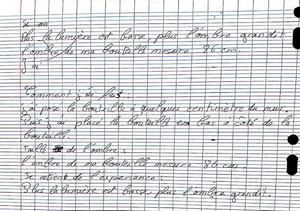 Si on
Plus la lumière est basse, plus l'ombre grandit
l'ombre de ma bouteille mesure 86 cm.
J'ai
Comment j'ai fait:
j'ai posé la bouteille à quelques centimètre du mur.
Puis j'ai placé la bouteille en bas a côté de la
bouteille.
Taille de l'ombre:
l'ombre de ma bouteille mesure 86 cm.
Je retient de l'experiance:
Plus la lumière est basse, plus l'ombre grandit.